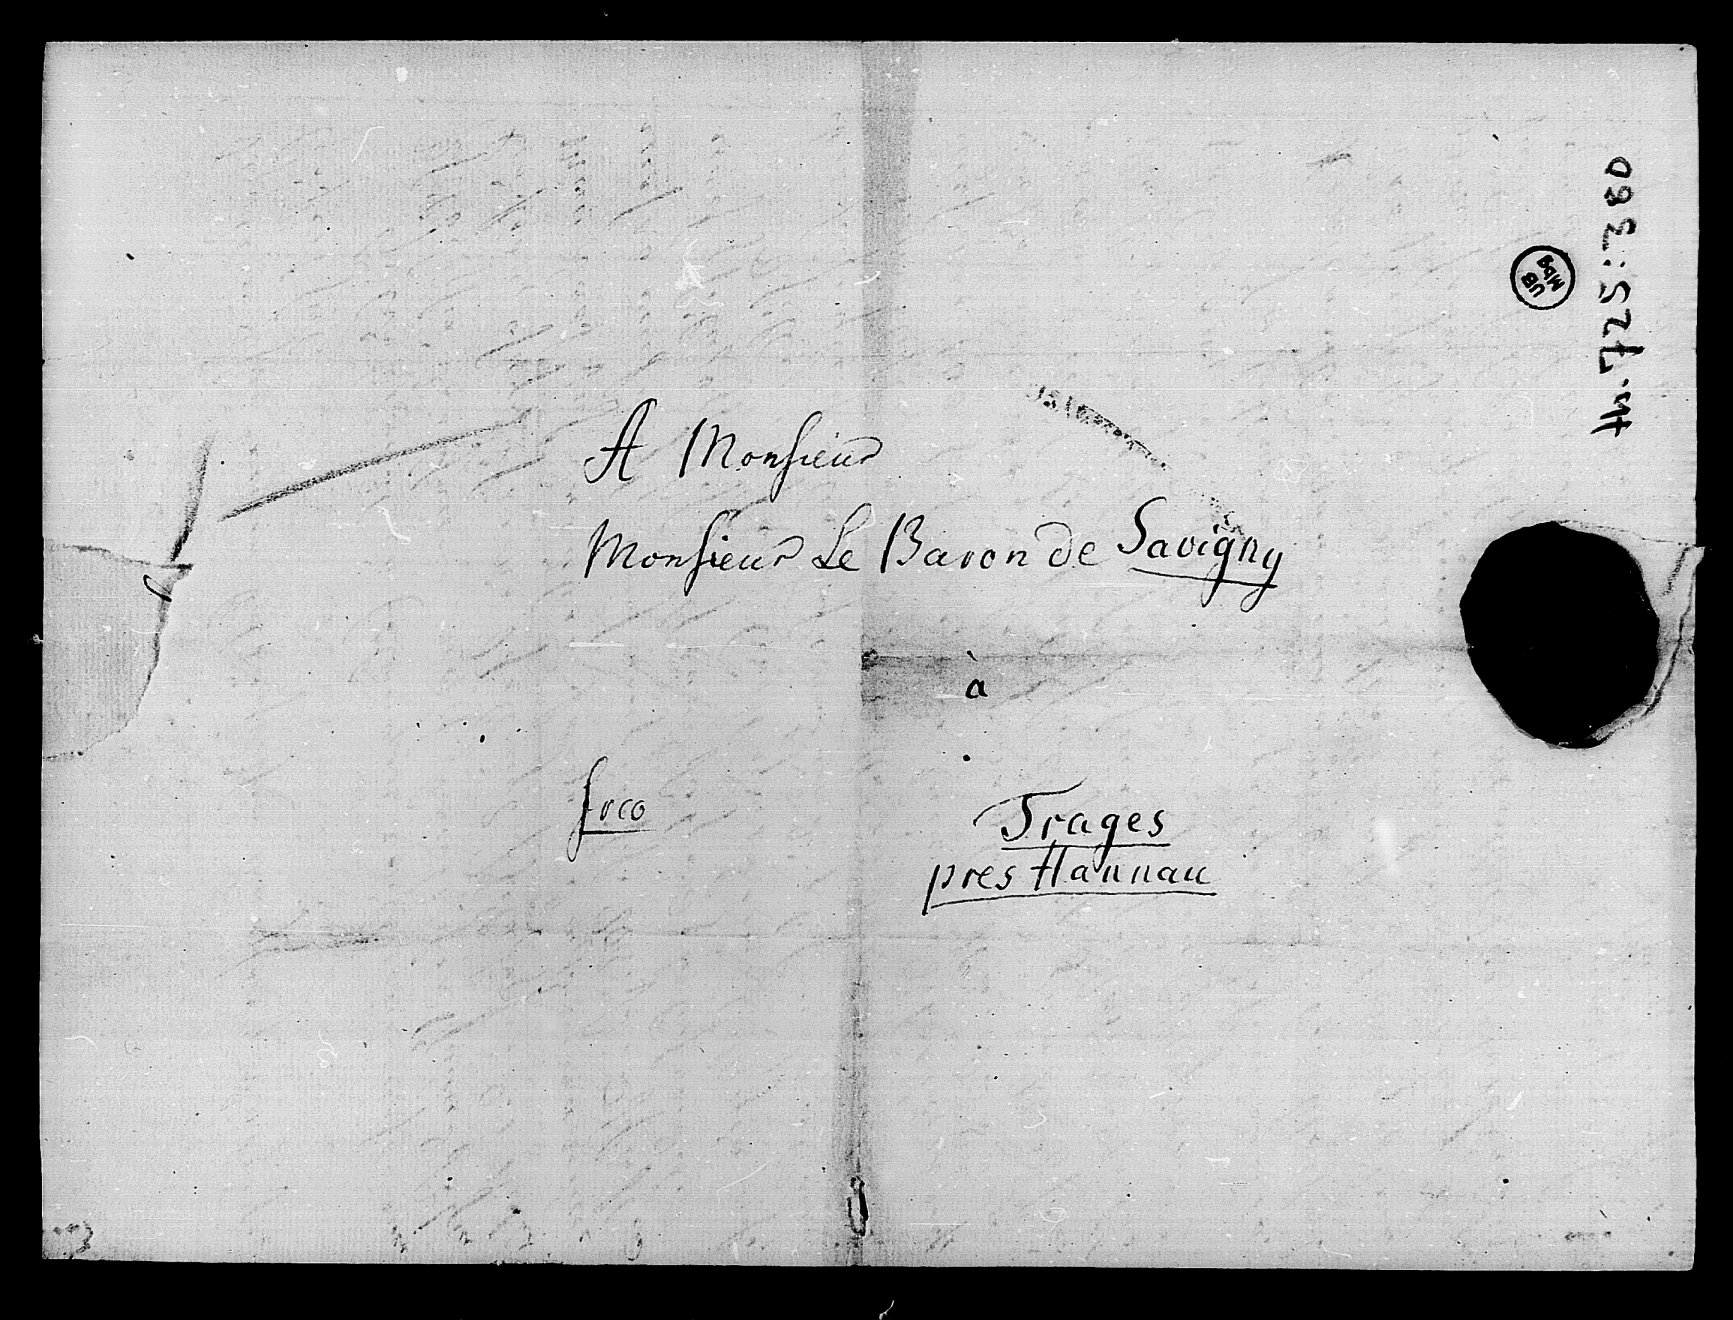 A Monsieur
Monsieur Le Baron de Savigny
à
frco
Trages
pres Hannau
Hs. 725:380
UB
Mbg